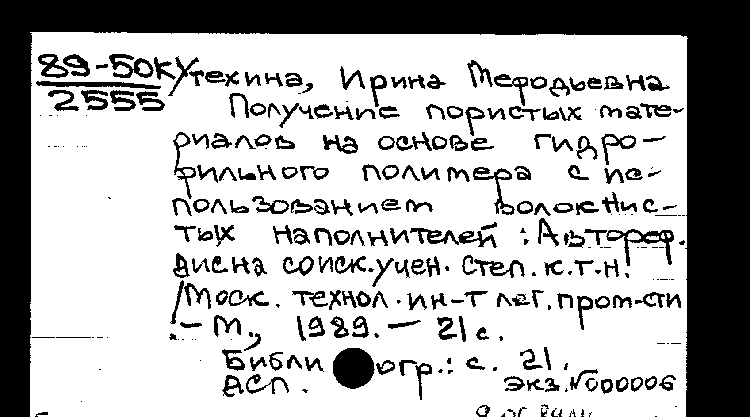 89-50К Утехина, Ирина Мефодьевна
2555 Получение пористых мате-
риалов на основе гидро-
фильного полимера с ис-
пользованием волокнис-
тых наполнителей : Автореф.
дис на соиск. учен. степ. к.т.н.
/Моск. технол. ин-т лег. пром-сти
.- М., 1989. - 21 с.
Библиогр.: с. 21.
ДСП. Экз. №000006